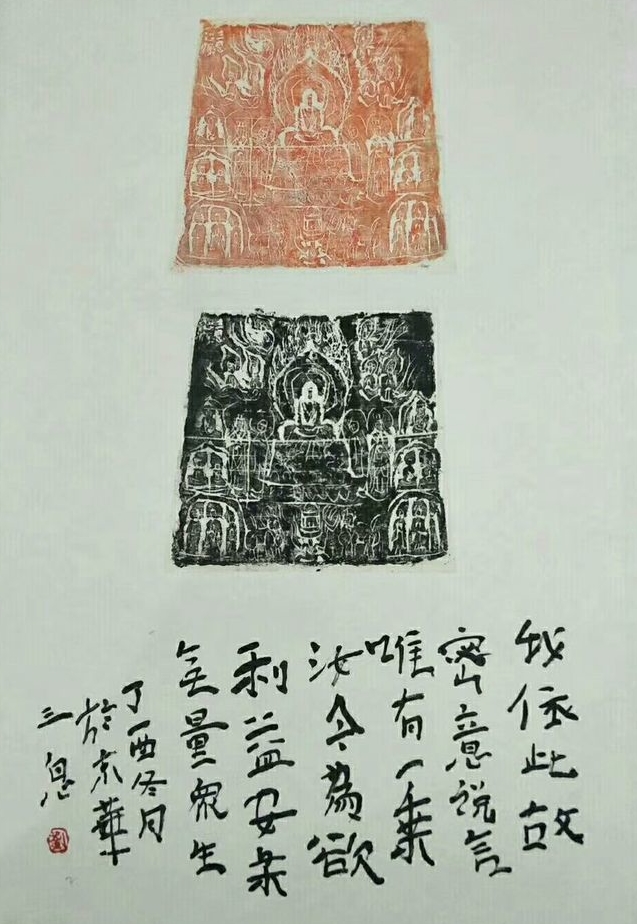 我依此故
密意说言
唯有一乘
汝今為欲
利益安樂
無量眾生
丁酉冬月
於京華
三息